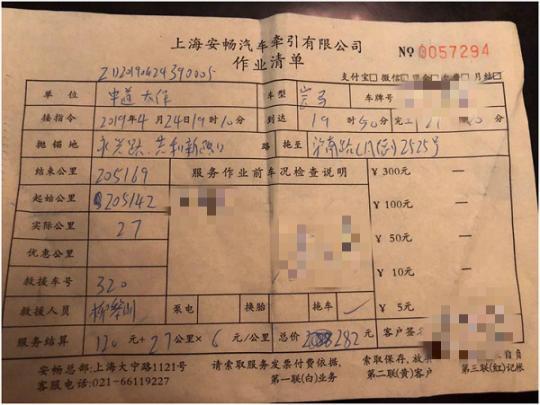 上海安畅汽车牵引有限公司 No 0057294
作业清单
ZD20190424390005 支付宝 微信 月结
单位 申道太保 车型 车牌号
接指令 2019年4月24日19时10分 到达 19时50分 完工
抛锚地 永兴路、共和新路口 路 拖至 沪南路 2525号
结束公里 205169 服务作业前车况检查说明 ¥300元 —
起始公里 205142 ¥100元 —
实际公里 27 ¥50元 —
优惠公里 ¥10元 —
救援车号 320
救援人员 泵电 换胎 拖车 ✓ ¥5元 —
服务结算 120元+27公里×6元/公里 总价 282元 客户签
安畅总部:上海大宁路1121号 请索取服务发票付费依据, 索取保存,放
客服电话:021-66119227 第一联(白)业务 第二联(黄)客户 第三联(红)记帐